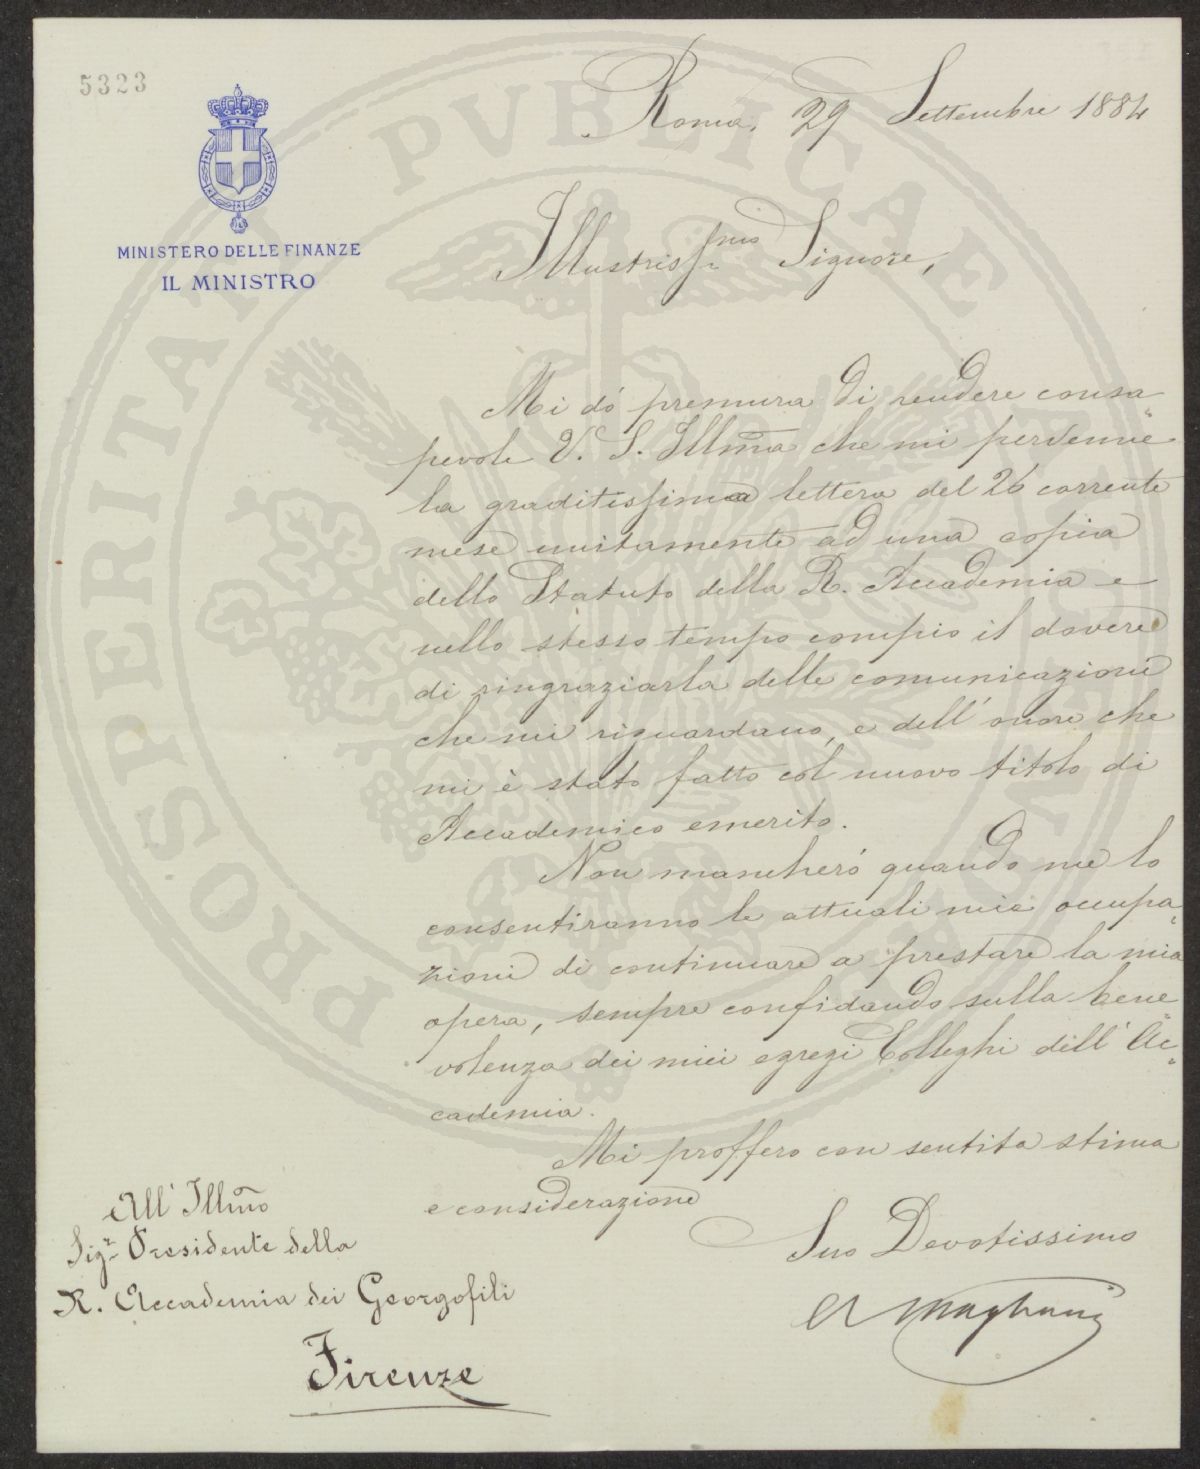 5323
MINISTERO DELLE FINANZE
IL MINISTRO
Roma, 29 Settembre 1884
Illustriss.mo Signore,
Mi dò premura di rendere consa
pevole V. S. Illma che mi pervenne
la graditissima lettera del 26 corrente
mese unitamente ad una copia
dello Statuto della R. Accademia e
nello stesso tempo compio il dovere
di ringraziarla delle comunicazioni
che mi riguardano, e dell'onore che
mi è stato fatto col nuovo titolo di
Accademico emerito.
Non mancherò quando me lo
consentiranno le attuali mie occupa=
zioni di continuare a prestare la mia
opera, sempre confidando sulla bene=
volenza dei miei egregi Colleghi dell'Ac=
cademia.
Mi proffero con sentita stima
e considerazione
Suo Devotissimo
A Magliani
All'Illmo
Sigr Presidente della
R. Accademia dei Georgofili
Firenze
PROSPERITATI PVBLICAE